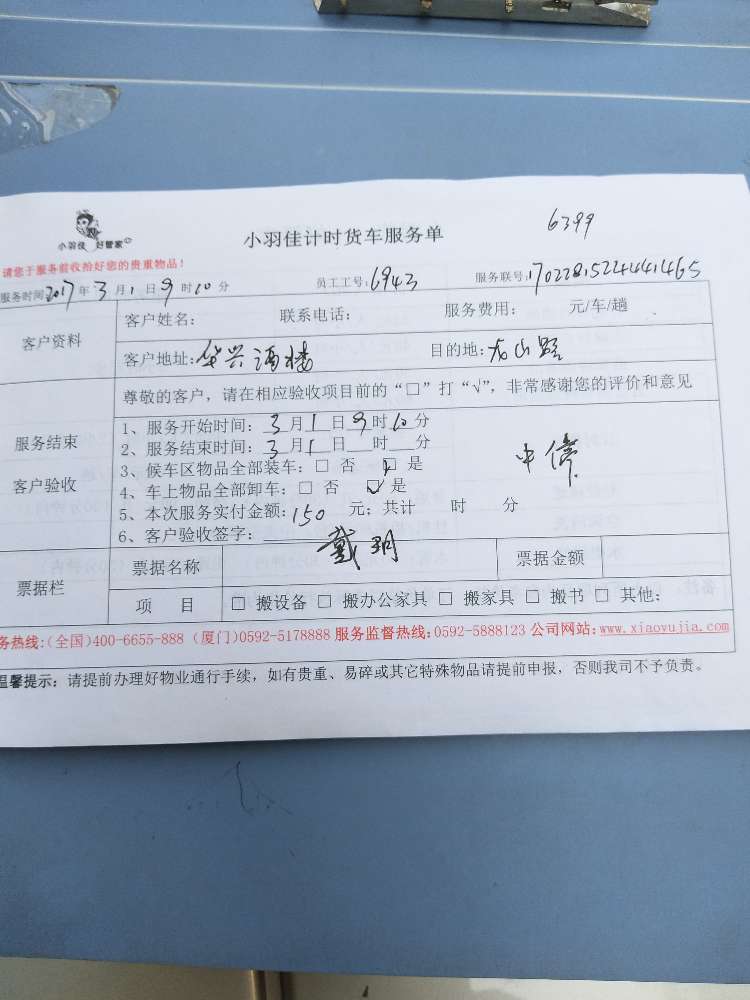 小羽佳 好管家
小羽佳计时货车服务单
6399
请您于服务前收拾好您的贵重物品！
服务时间2017年3月1日9时10分 员工工号:6943 服务联号:17022815224441465
客户资料
客户姓名： 联系电话： 服务费用： 元/车/趟
客户地址:华兴酒楼 目的地:龙山路
尊敬的客户，请在相应验收项目前的“□”打“√”，非常感谢您的评价和意见
服务结束
客户验收
1、服务开始时间：3月1日9时10分
2、服务结束时间：3月1日 时 分
3、候车区物品全部装车：□ 否 ☑ 是
4、车上物品全部卸车：□ 否 ☑ 是
5、本次服务实付金额：150 元；共计 时 分
6、客户验收签字：戴玥
中停
票据栏
票据名称 票据金额
项 目 □ 搬设备 □ 搬办公家具 □ 搬家具 □ 搬书 □ 其他：
务热线:(全国)400-6655-888 (厦门)0592-5178888 服务监督热线:0592-5888123 公司网站:www.xiaoyujia.com
温馨提示：请提前办理好物业通行手续，如有贵重、易碎或其它特殊物品请提前申报，否则我司不予负责。